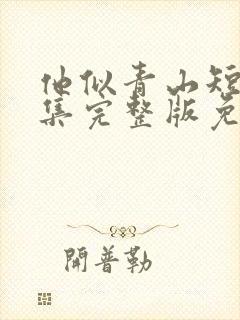 他似青山短
集完整版免
開普勒